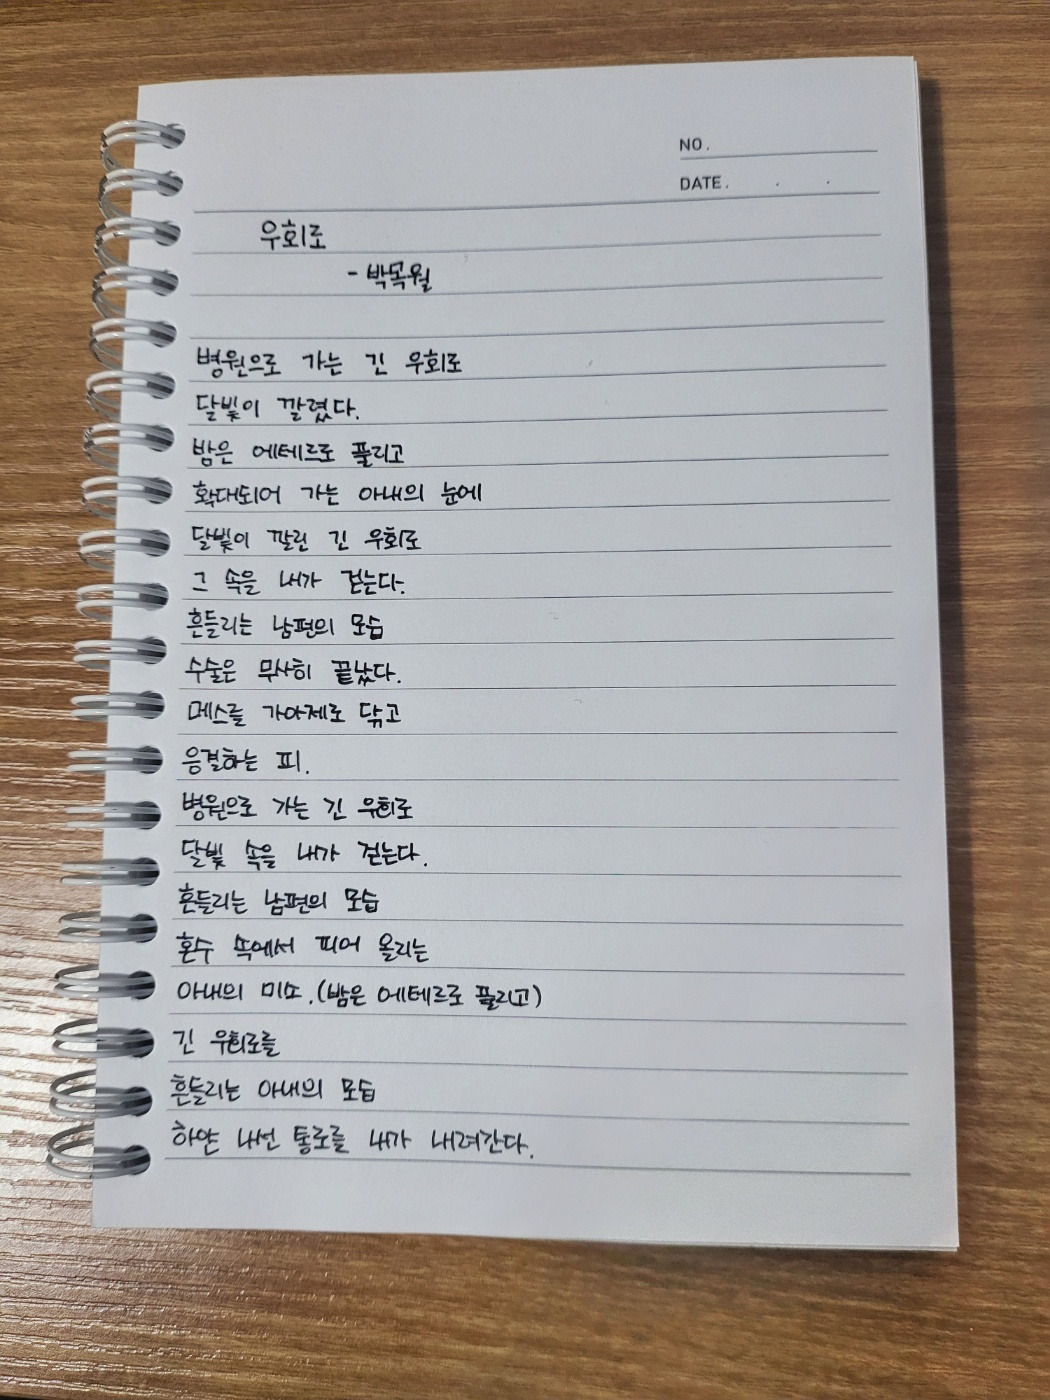 NO.
DATE. . .
우회로
- 박목월
병원으로 가는 긴 우회로
달빛이 깔렸다.
밤은 에테르로 풀리고
확대되어 가는 아내의 눈에
달빛이 깔린 긴 우회로
그 속을 내가 걷는다.
흔들리는 남편의 모습
수술은 무사히 끝났다.
메스를 가아제로 닦고
응결하는 피.
병원으로 가는 긴 우회로
달빛 속을 내가 걷는다.
흔들리는 남편의 모습
혼수 속에서 피어 올리는
아내의 미소.(밤은 에테르로 풀리고)
긴 우회로를
흔들리는 아내의 모습
하얀 내선 통로를 내가 내려간다.